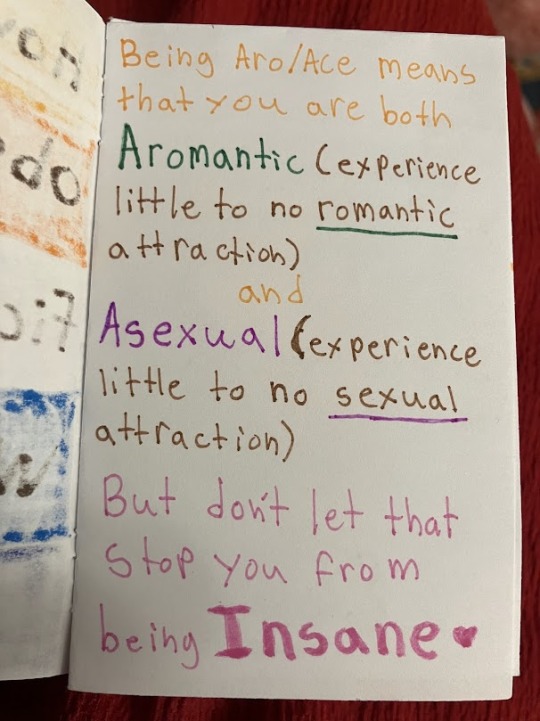 Being Aro/Ace means
that you are both
Aromantic (experience
little to no romantic
attraction)
and
Asexual (experience
little to no sexual
attraction)
But don't let that
stop you from
being Insane ♥